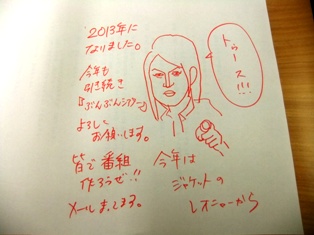 2013年に
なりました。
今年も
引き続き
『ぶんぶん
よろしく
お願いします。
皆で番組
作ろうぜ!!
メールまってます。
トゥース!!!
今年は
ジャケットの
レオニャーから